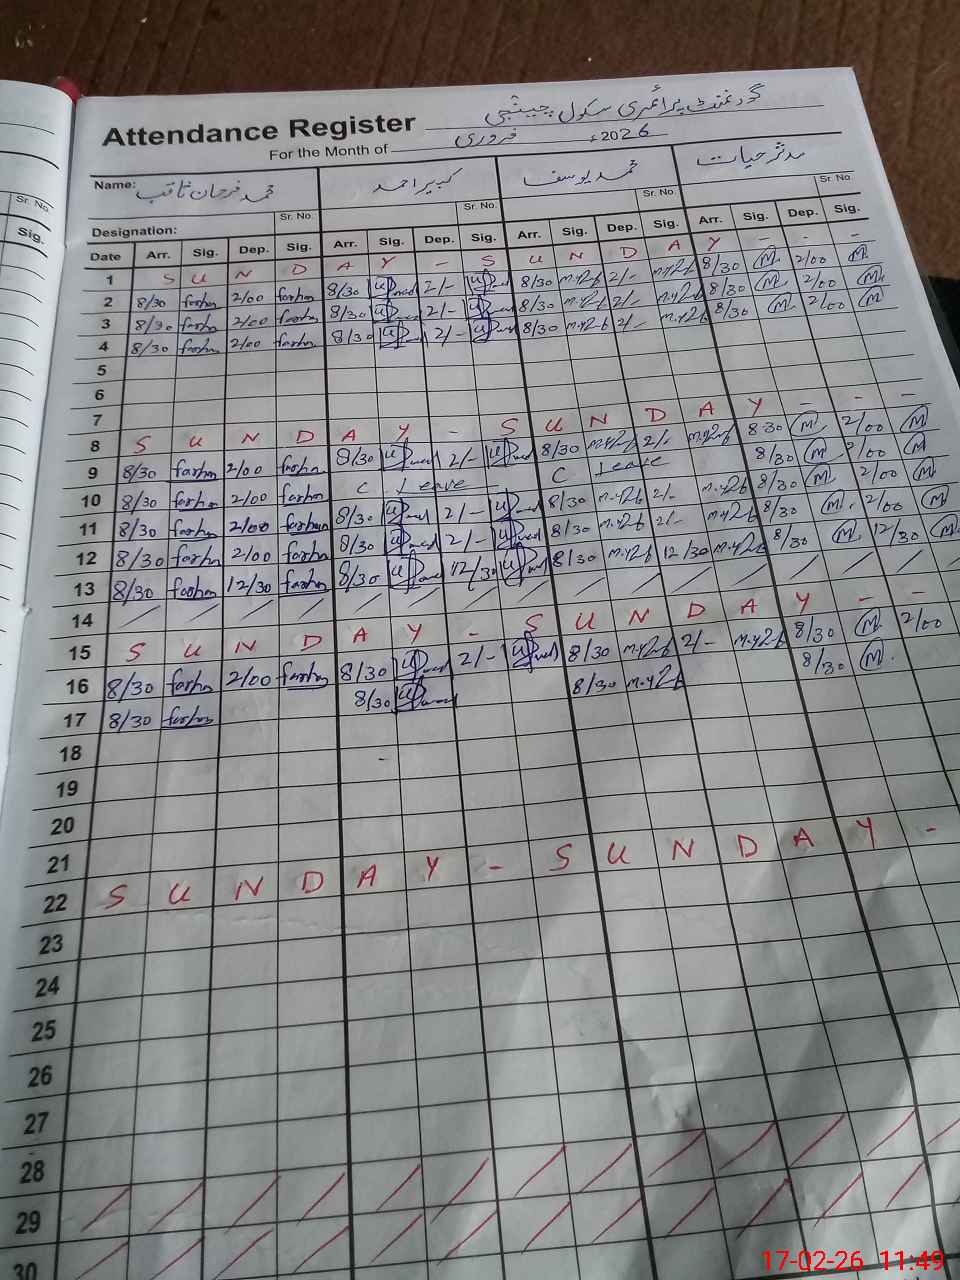 Attendance Register گورنمنٹ پرائمری سکول
For the Month of فروری ء2026
Name: محمد فرحان ثاقب کبیر احمد محمد یوسف مدثر حیات
Sr. No. Sr. No. Sr. No. Sr. No.
Designation:
Date Arr. Sig. Dep. Sig. Arr. Sig. Dep. Sig. Arr. Sig. Dep. Sig. Arr. Sig. Dep. Sig.
1 S U N D A Y - S U N D A Y - - -
2 8/30 farhan 2/00 farhan 8/30 2/- 8/30 m.y26 2/- m.y26 8/30 M 2/00 M
3 8/30 farhan 2/00 farhan 8/30 2/- 8/30 m.y26 2/- m.y26 8/30 M 2/00 M
4 8/30 farhan 2/00 farhan 8/30 2/- 8/30 m.y26 2/- m.y26 8/30 M 2/00 M
5
6
7
8 S U N D A Y - S U N D A Y - - -
9 8/30 farhan 2/00 farhan 8/30 2/- 8/30 m.y26 2/- m.y26 8.30 M 2/00 M
10 8/30 farhan 2/00 farhan C Leave C Leave 8/30 M 2/00 M
11 8/30 farhan 2/00 farhan 8/30 2/- 8/30 m.y26 2/- m.y26 8/30 M 2/00 M
12 8/30 farhan 2/00 farhan 8/30 2/- 8/30 m.y26 2/- m.y26 8/30 M 2/00 M
13 8/30 farhan 12/30 farhan 8/30 12/30 8/30 m.y26 12/30 m.y26 8/30 M 12/30 M
14
15 S U N D A Y - S U N D A Y - -
16 8/30 farhan 2/00 farhan 8/30 2/- 8/30 m.y26 2/- m.y26 8/30 M 2/00
17 8/30 farhan 8/30 8/30 m.y26 8/30 M
18
19
20
21
22 S U N D A Y - S U N D A Y -
23
24
25
26
27
28
29
30
Sr. No.
Sig.
17-02-26 11:49